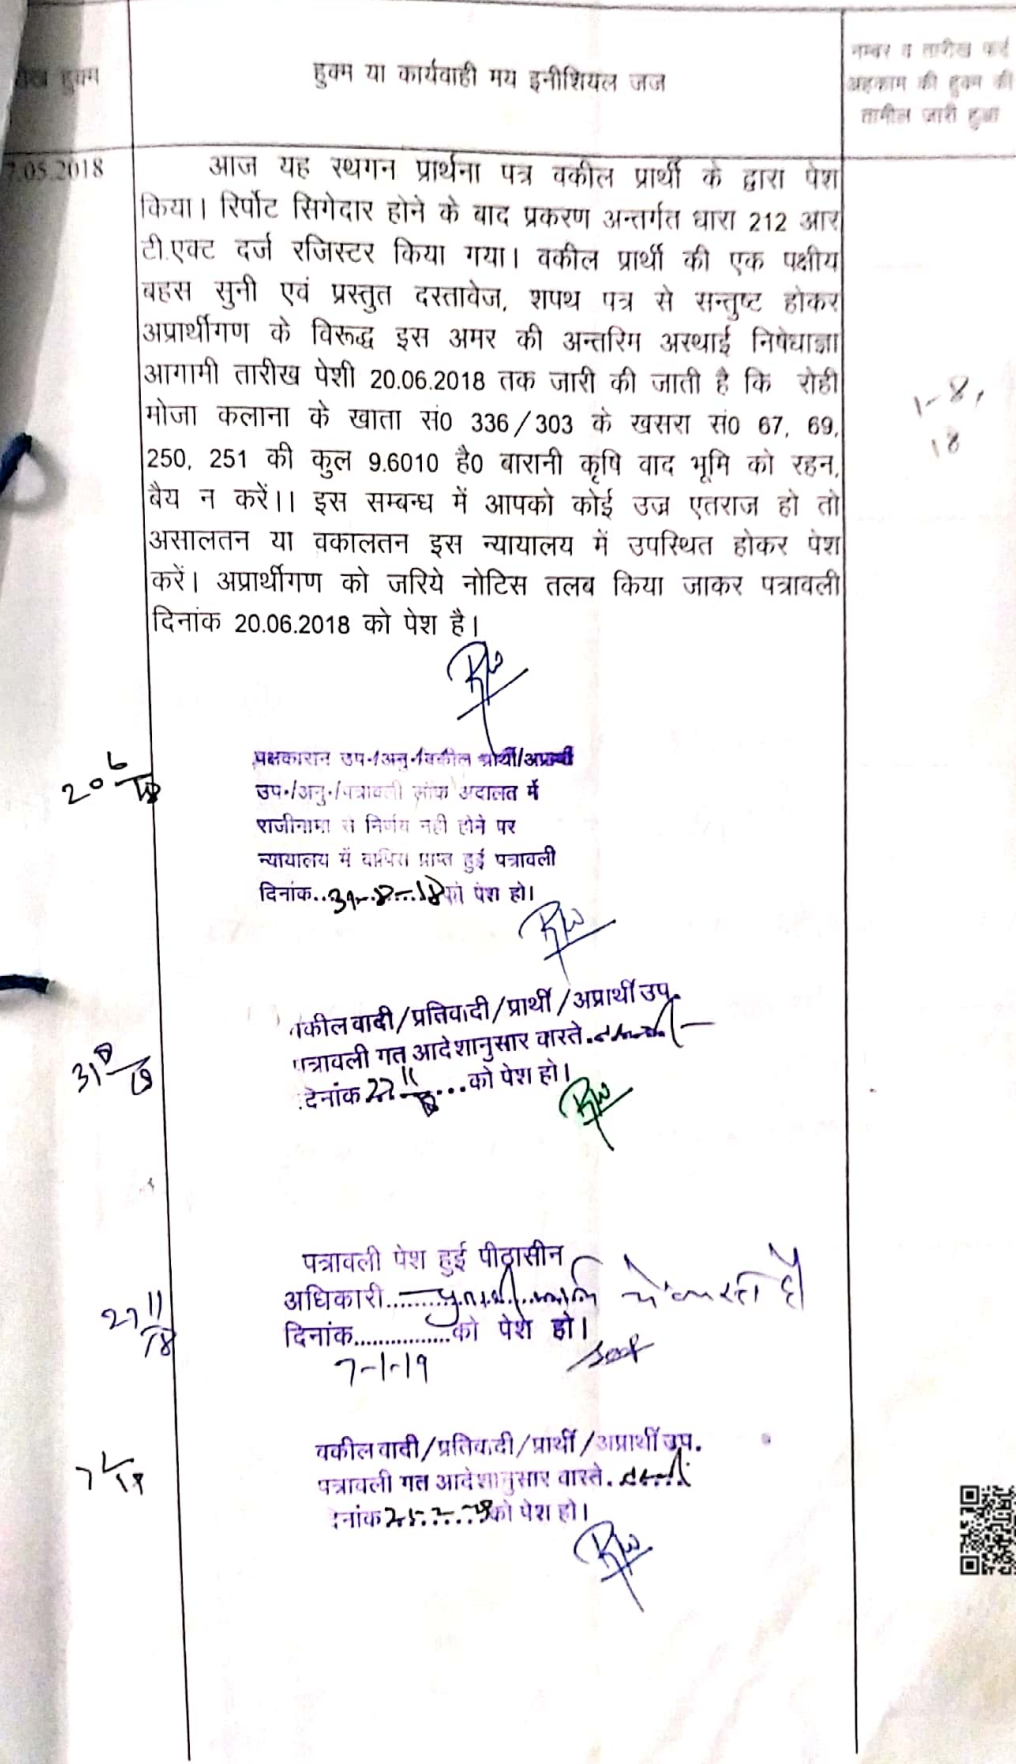 हुक्म
हुक्म या कार्यवाही मय इनीशियल जज
नम्बर व तारीख
अहकाम की हुक्म की
तामील जारी हुआ
7.05.2018
आज यह स्थगन प्रार्थना पत्र वकील प्रार्थी के द्वारा पेश
किया। रिर्पोट सिगेदार होने के बाद प्रकरण अन्तर्गत धारा 212 आर
टी.एक्ट दर्ज रजिस्टर किया गया। वकील प्रार्थी की एक पक्षीय
बहस सुनी एवं प्रस्तुत दस्तावेज, शपथ पत्र से सन्तुष्ट होकर
अप्रार्थीगण के विरूद्ध इस अमर की अन्तरिम अस्थाई निषेधाज्ञा
आगामी तारीख पेशी 20.06.2018 तक जारी की जाती है कि रोही
मोजा कलाना के खाता सं0 336/303 के खसरा सं0 67, 69,
250, 251 की कुल 9.6010 है0 बारानी कृषि वाद भूमि को रहन,
बैय न करें।। इस सम्बन्ध में आपको कोई उज्र एतराज हो तो
असालतन या वकालतन इस न्यायालय में उपस्थित होकर पेश
करें। अप्रार्थीगण को जरिये नोटिस तलब किया जाकर पत्रावली
दिनांक 20.06.2018 को पेश है।
1-8,
18
20 6/18
पक्षकारान उप./अनु./वकील प्रार्थी/अप्रार्थी
उप./अनु./पत्रावली लोक अदालत में
राजीनामा से निर्णय नही होने पर
न्यायालय में वापिस प्राप्त हुई पत्रावली
दिनांक..31-8-18को पेश हो।
31 8/18
वकील वादी/प्रतिवादी/प्रार्थी/अप्रार्थी उप.
पत्रावली गत आदेशानुसार वास्ते.
दिनांक 27 11/18...को पेश हो।
27 11/18
पत्रावली पेश हुई पीठासीन
अधिकारी
दिनांक................को पेश हो।
7-1-19
वकील वादी/प्रतिवादी/प्रार्थी/अप्रार्थी उप.
पत्रावली गत आदेशानुसार वास्ते.
दिनांक को पेश हो।